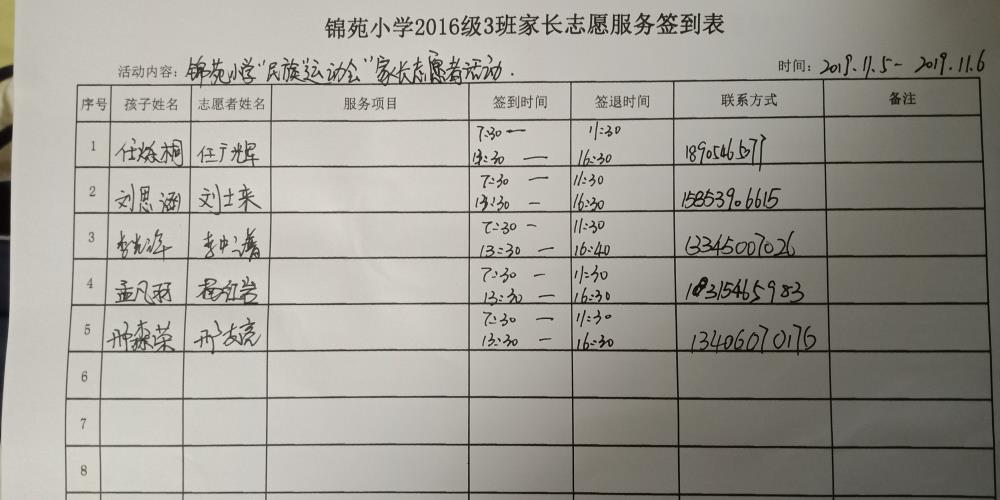 锦苑小学2016级3班家长志愿服务签到表
活动内容：锦苑小学“民族运动会”家长志愿者活动.
时间：2019.11.5－2019.11.6
序号 孩子姓名 志愿者姓名 服务项目 签到时间 签退时间 联系方式 备注
7:30 — 11:30
1 任烁桐 任广辉
13:30 — 16:30
7:30 — 11:30
2 刘思涵 刘士来 15853906615
13:30 — 16:30
7:30 — 11:30
3 13345007026
13:30 — 16:40
7:30 — 11:30
4 孟凡羽 杨红岩 18315465983
13:30 — 16:30
7:30 — 11:30
5 邢森荣 邢友亮 13406070176
13:30 — 16:30
6
7
8